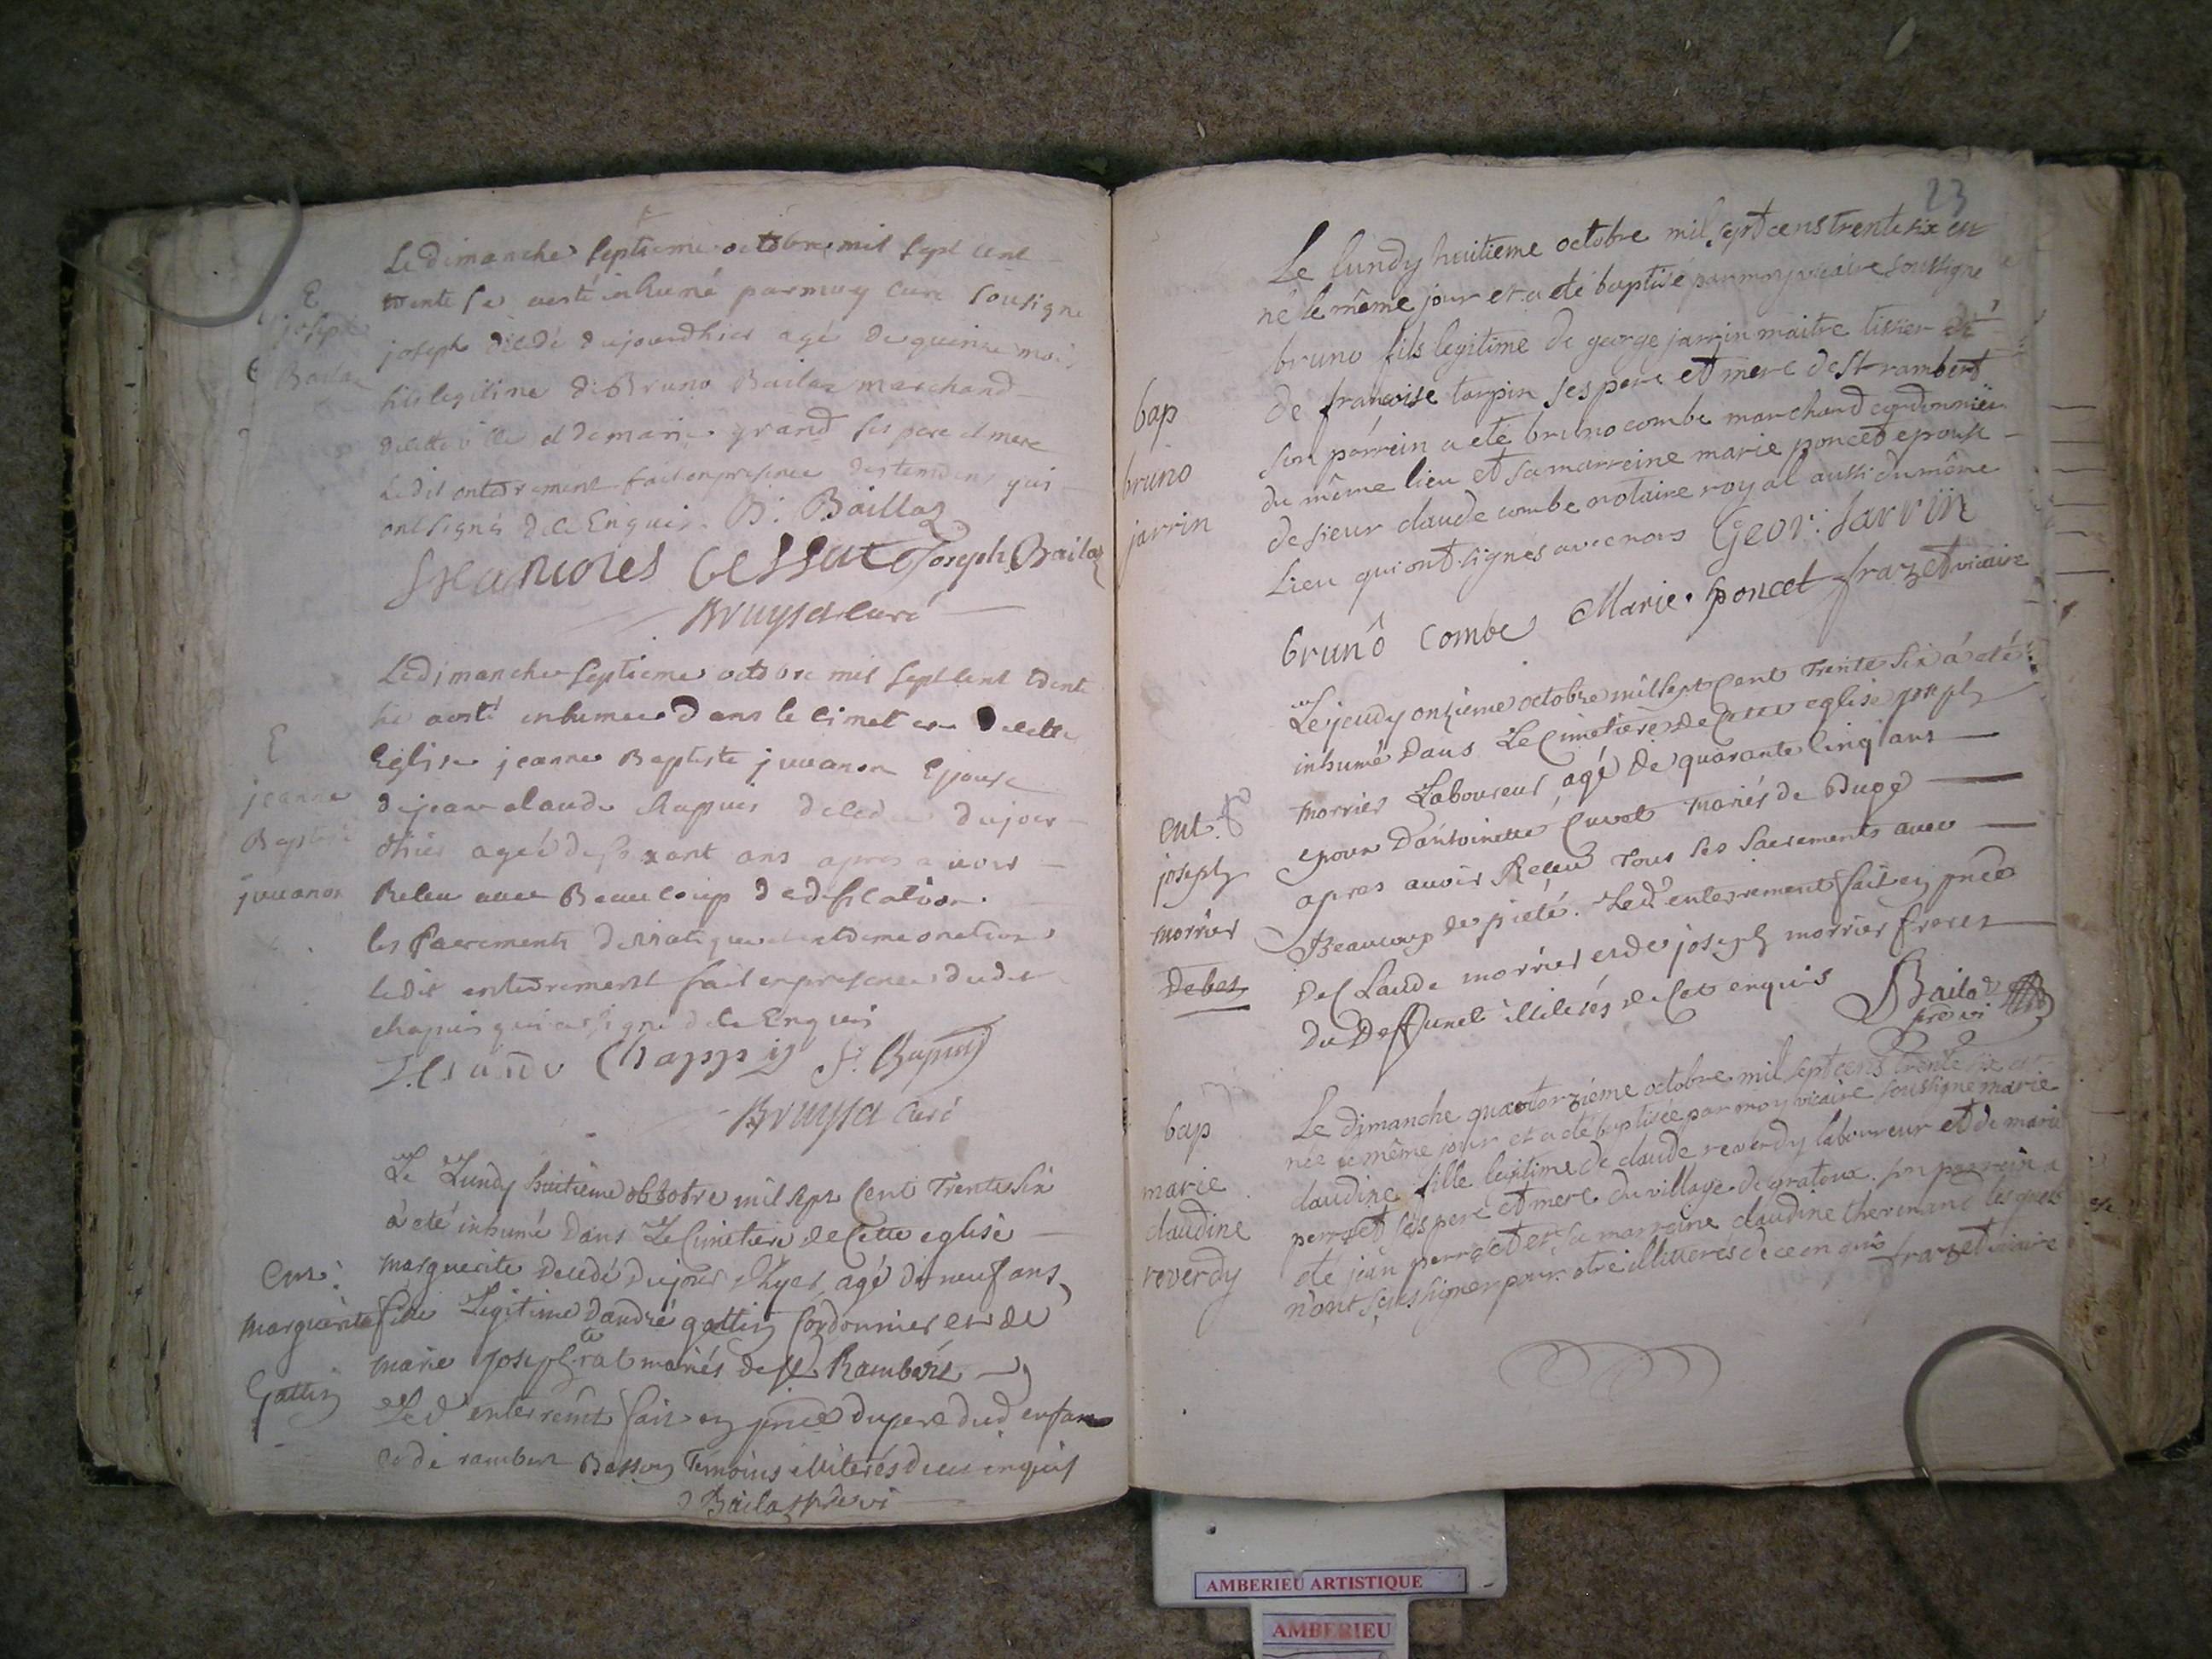 E
joseph
Bailaz
Le dimanche septieme octobre mil sept cent
trente se aesté inhumé par moy curé sousigne
joseph décédé dujourdhier agé de quinze mois
fils legitime de Bruno Bailaz marchand
decette ville et de marie grand ses pere et mere
Ledit enterrement fait en presence des temoins qui
ont signés de ce Enquis. B: Baillaz
Joseph Bailaz
Bruysa curé
E
jeanne
Baptiste
juuanon
Le dimanche septieme octobre mil sept cent trente
six aesté inhumee dans le cimetiere decette
Eglise jeanne Baptiste juuanon Epouse
de jean claude chapuis decedee dujour
dhier ageé de soixant ans apres auoir
Receu auec Beaucoup dedification.
les sacrements
ledit enterrement fait en presence dudit
chapuis qui a signé de ce Enquis
Bruysa curé
ent:
marguerite
Gallin
Le Lundy huitieme octobre mil sept Cent Trente six
à eté inhumé Dans Le Cimetiere de Cette eglise
marguerite decedé dujour d'hyer, agé de neuf ans,
fille Legitime dandré gallin Cordonnier et de
marie joseph rat mariés de St Rambert
Led enterremt fait en pnce du pere dud enfant
et de rambert Basson Temoins illiterés de ce enquis
Bailaz ptre vi
23
bap
bruno
jarrin
Le lundy huitieme octobre mil sept cens trente six est
né le même jour et a eté baptisé par moy vicaire soussigné
bruno fils legitime de george jarrin maitre tissier et
de francoise tarpin ses pere et mere de St rambert
son parrein a eté bruno combe marchand cordonnier
du même lieu et sa marreine marie poncet epouse
de sieur claude combe notaire royal aussi du même
Lieu qui ont signés avec nous Geor: Jarrin
brunô combe Marie poncet frazet vicaire
ent:
joseph
morrier
Debes
Le jeudy onzieme octobre mil sept Cent Trente six à eté
inhumé dans Le Cimetiere de Cette eglise joseph
morrier Laboureur, agé de quarante Cinq ans
epoux D'antoinette Cuvet mariés de
apres auoir Receu Tous les Sacrements avec
Beaucoup de pieté. Led enterrement fait en pnce
de Claude morrier et de joseph morrier freres
du Deffunct illiterés de Ce enquis Bailaz
ptre vi
bap
marie
claudine
reverdy
Le dimanche quatorzieme octobre mil sept cens trente six est
née le même jour et a eté baptisée par moy vicaire soussigné marie
claudine fille legitime de claude reverdy laboureur et de marie
perret ses pere et mere du village de gratoux son parrein a
eté jean perret et sa marreine claudine les quels
n'ont sçeu signer pour etre illiterés de ce enquis frazet vicaire
AMBERIEU ARTISTIQUE
AMBERIEU